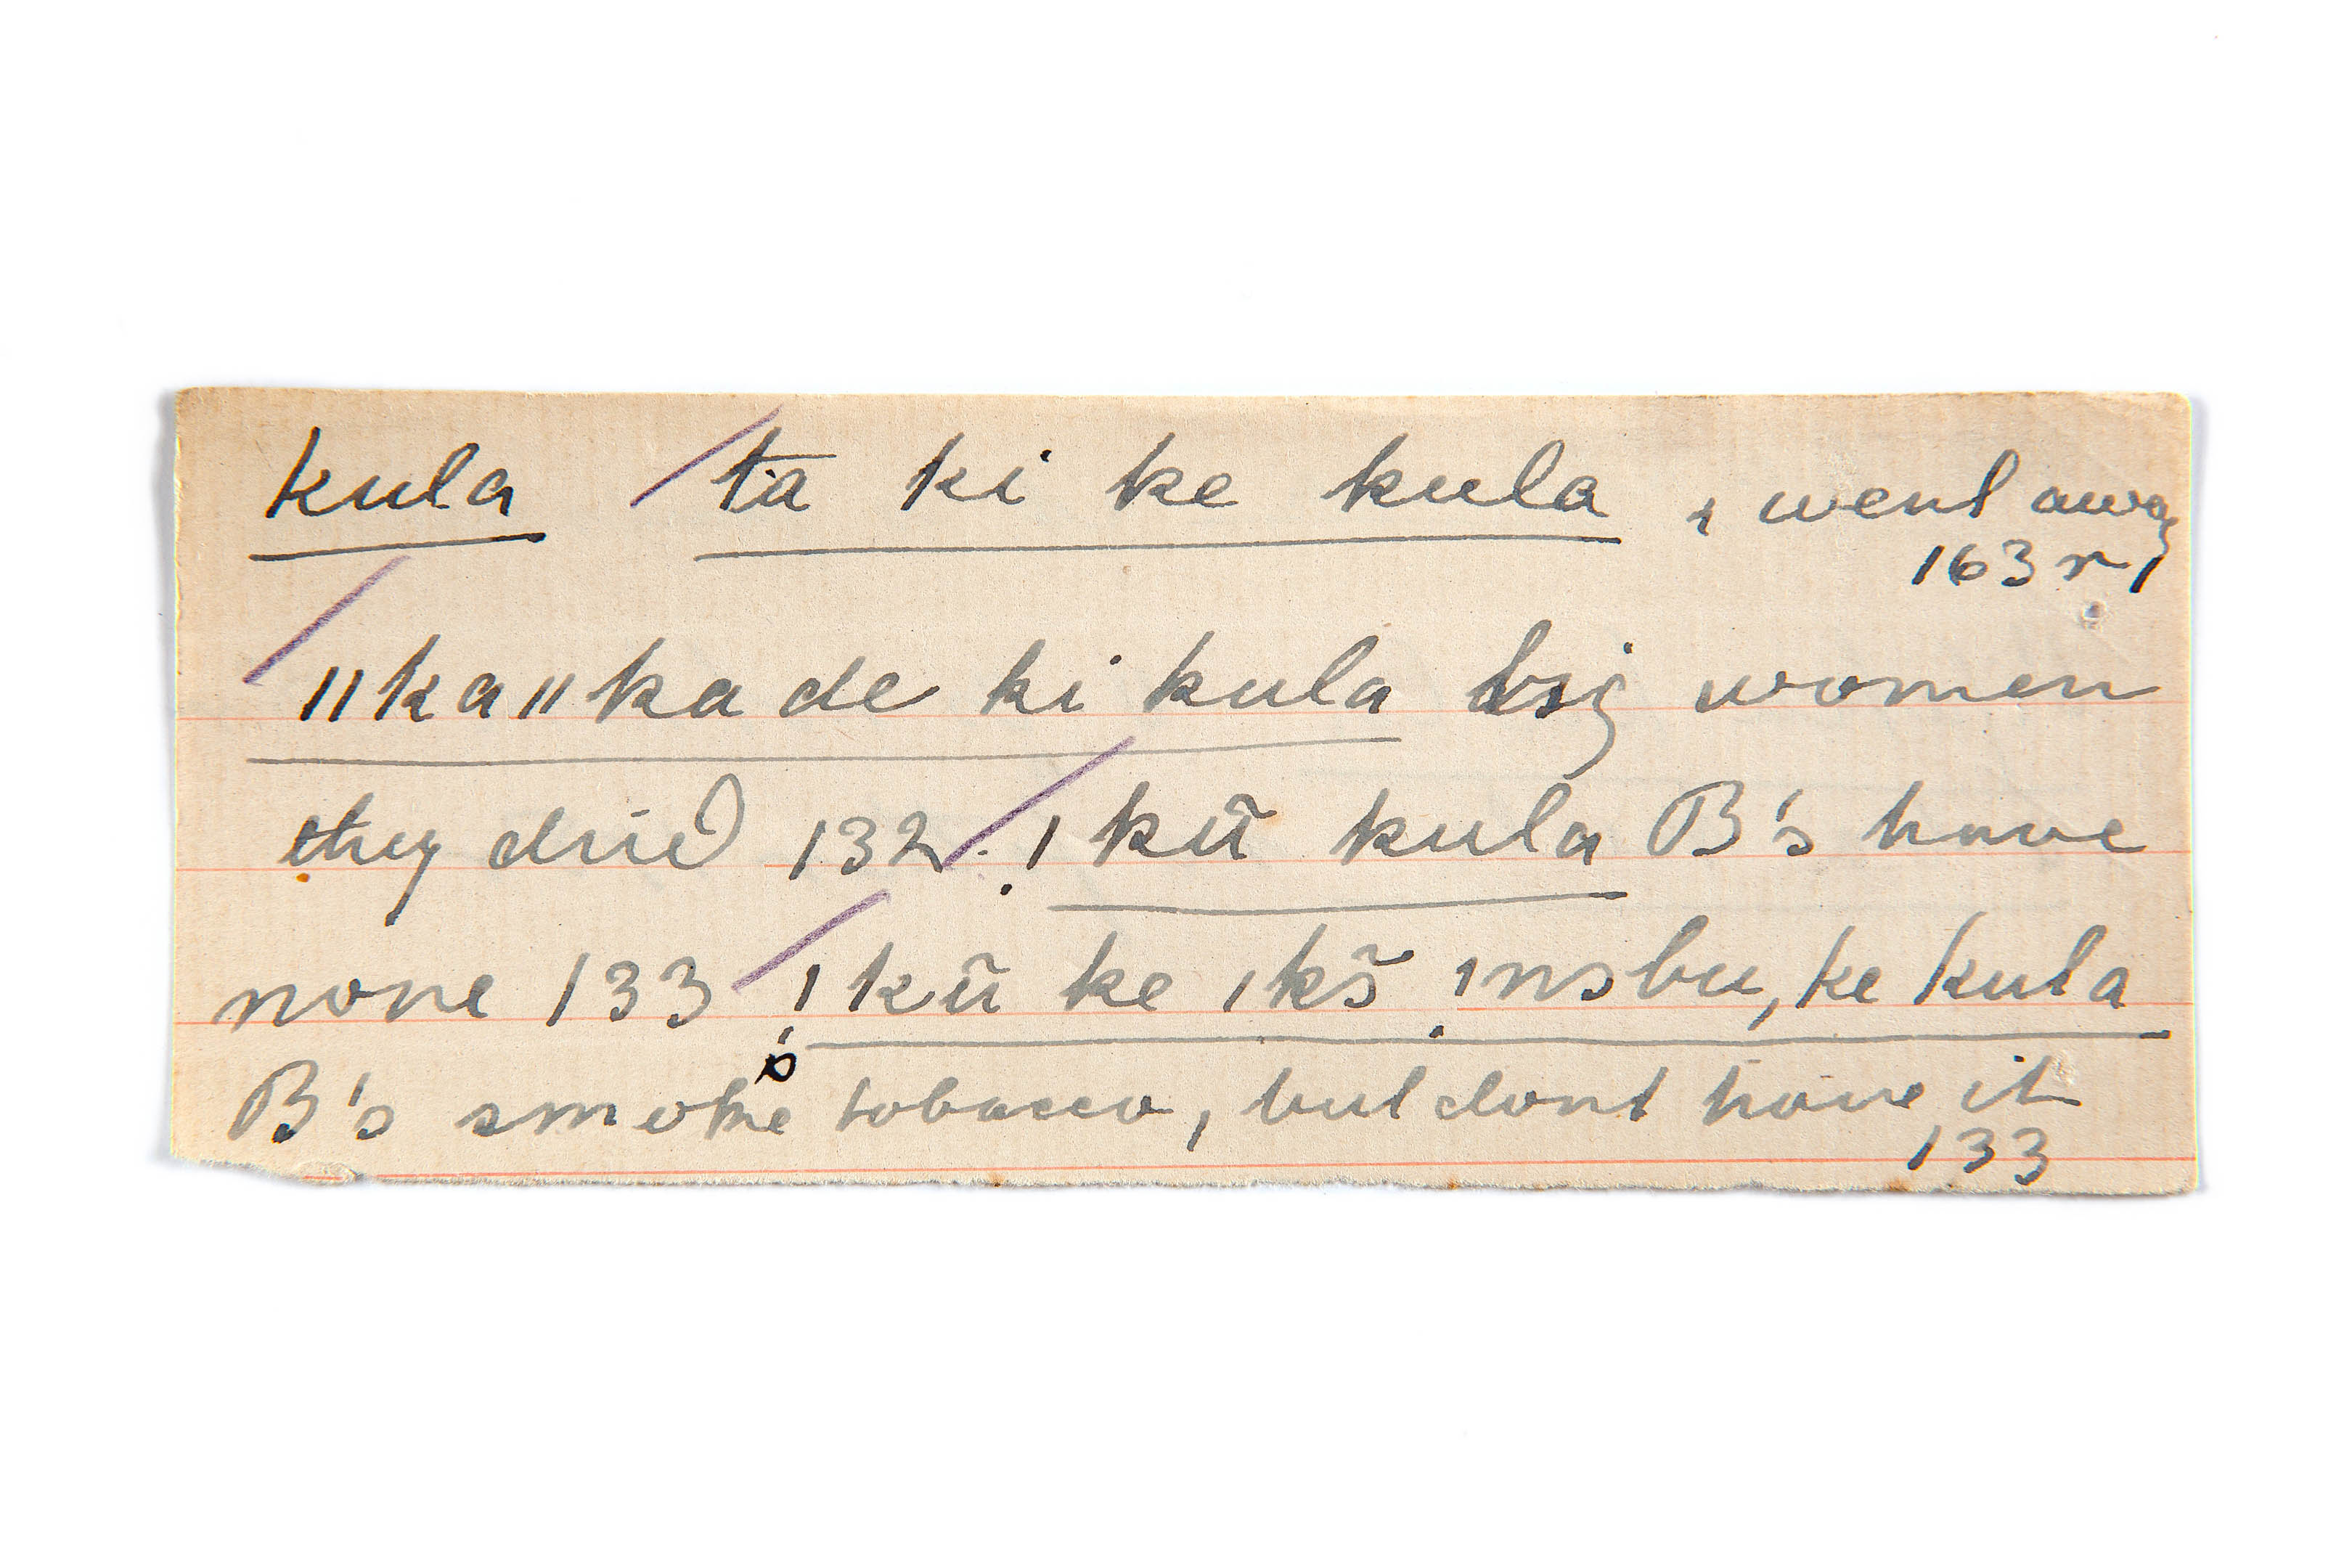 kula ta ki ke kula, went away
163 r,
ǁka ǁka de ki kula big women
they died 132. ǀkũ kula B's have
none 133 ǃkũ ke ǀkš ǃnsbu, ke kula
B's smoke tobacco, but dont have it
133